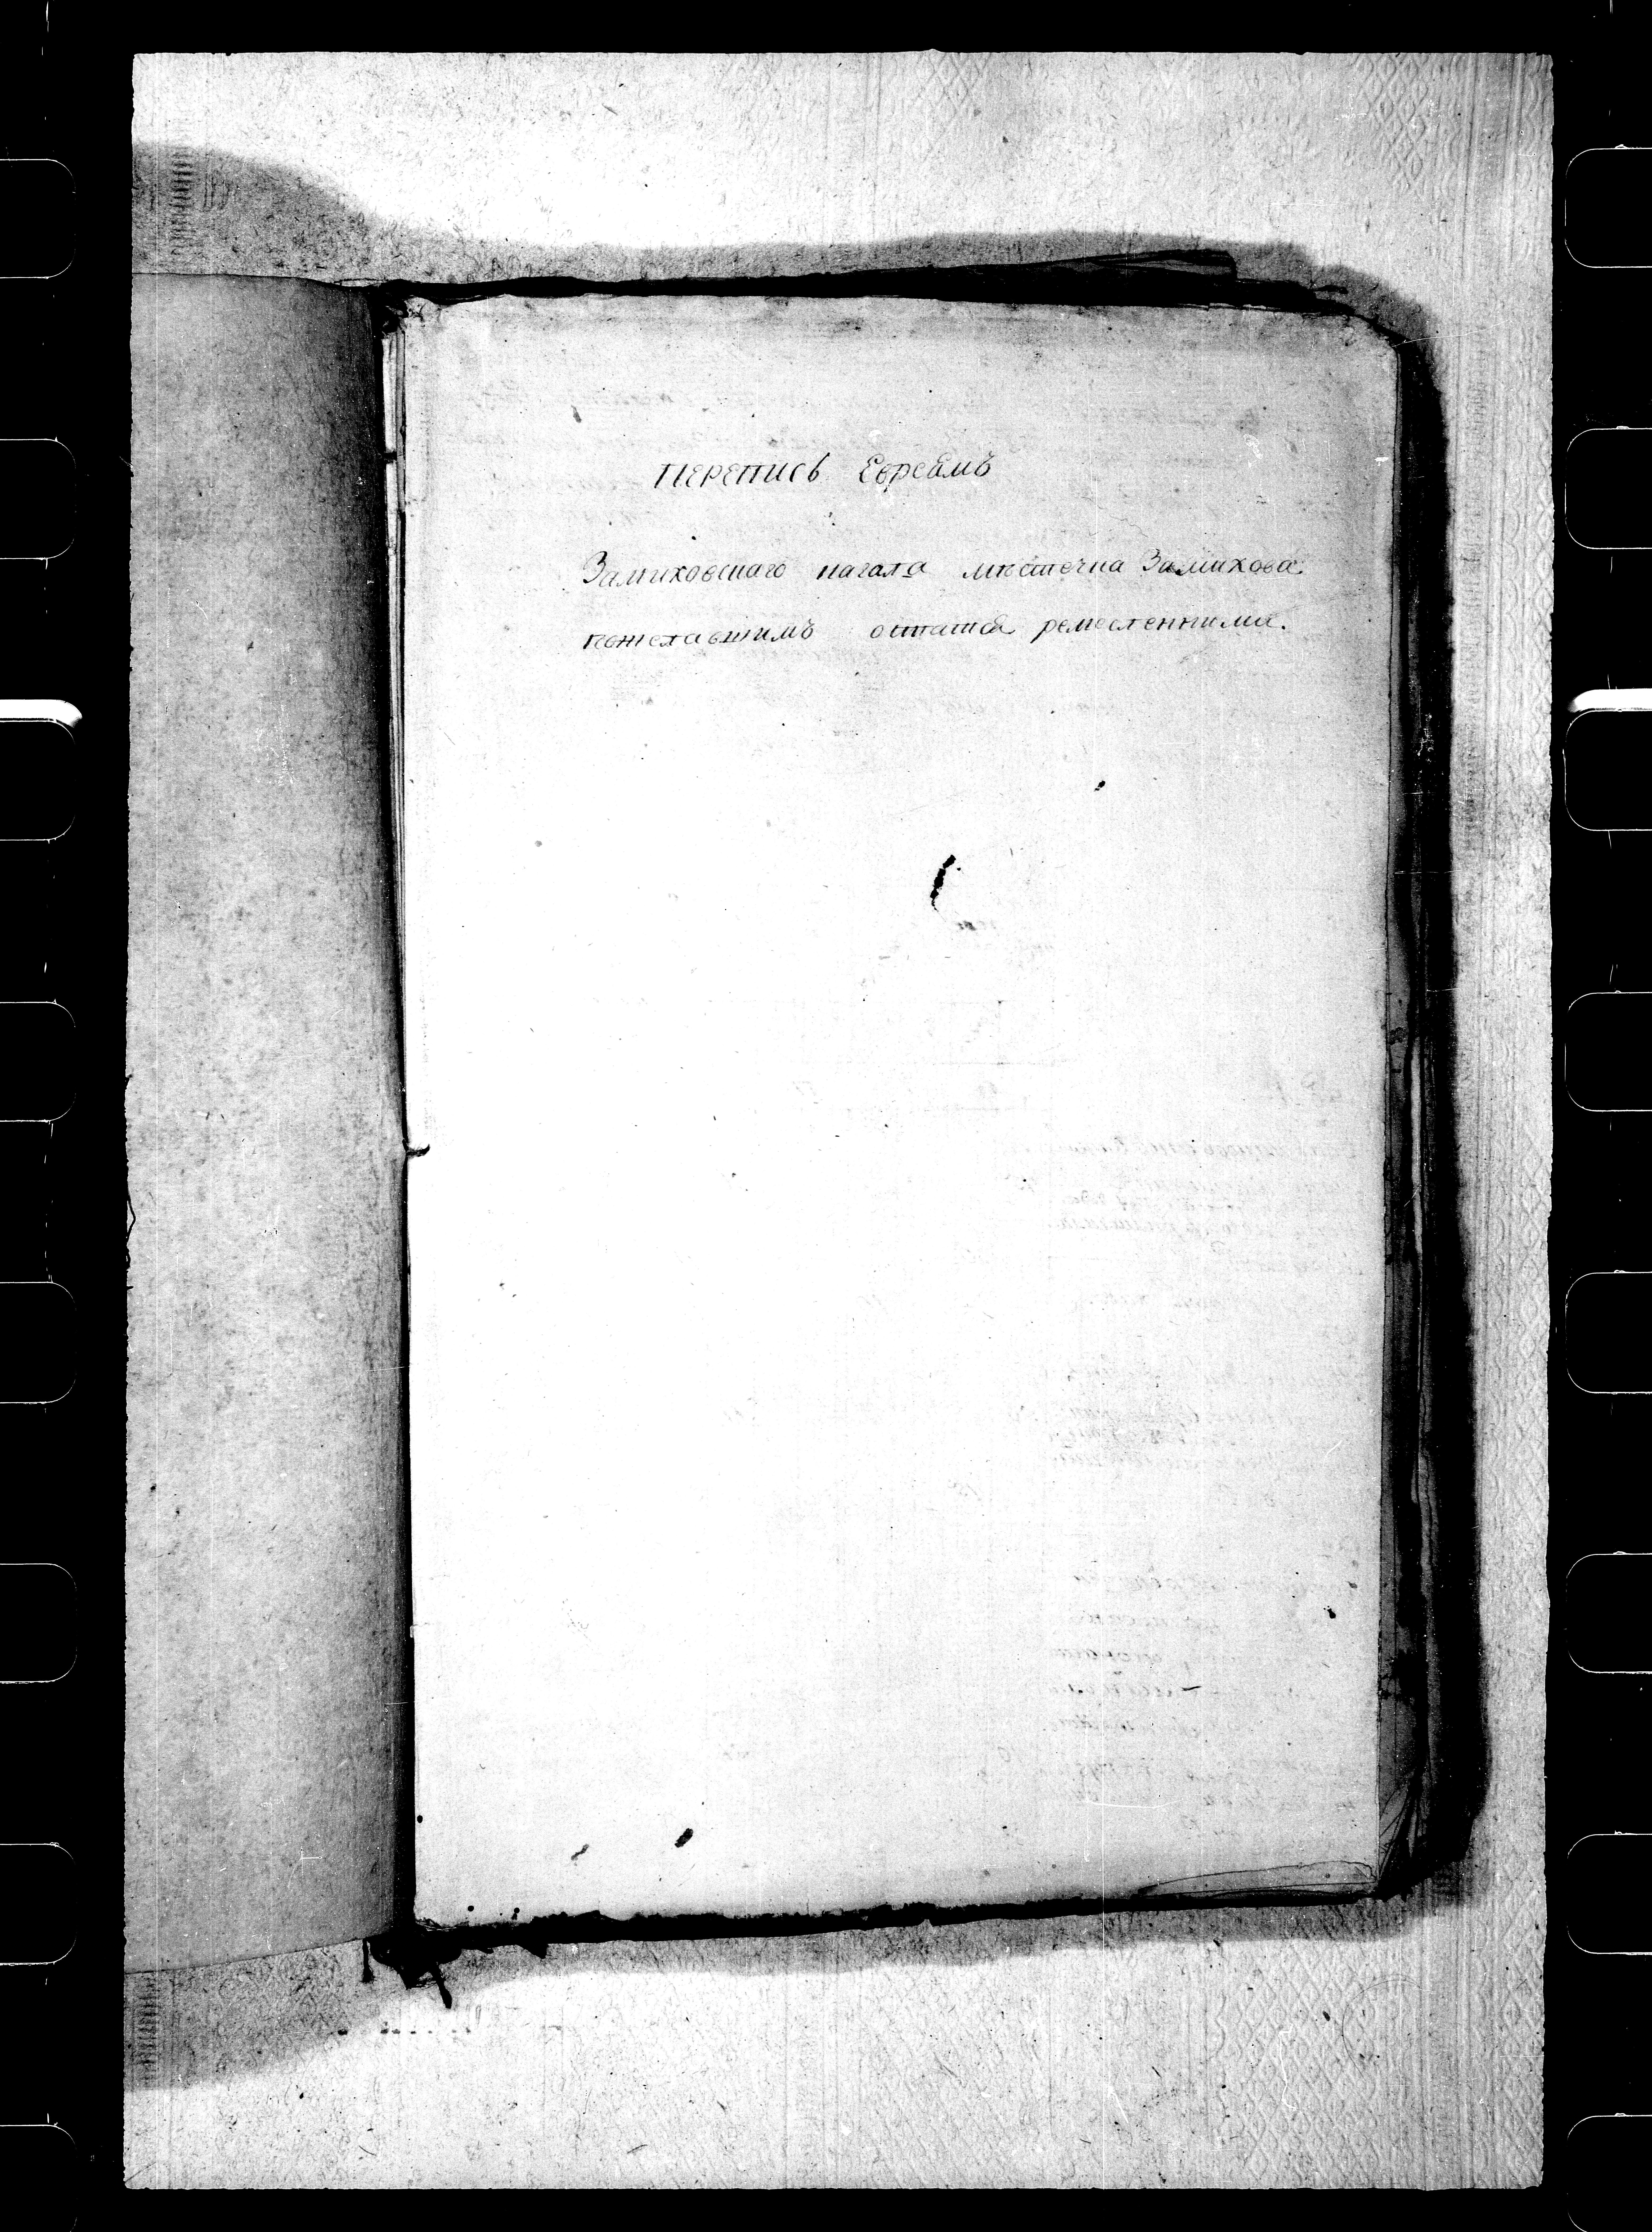 Перепись Евреямъ
Замиховскаго кагала мѣстечка Замихова
пожелавшимъ остатся ремесленники.